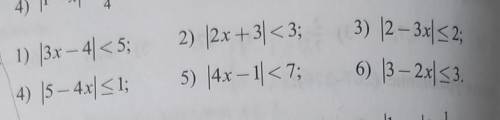 4)
1) |3x – 4| < 5; 2) |2x + 3| < 3; 3) |2 – 3x| ≤ 2;
4) |5 – 4x| ≤ 1; 5) |4x – 1| < 7; 6) |3 – 2x| ≤ 3.